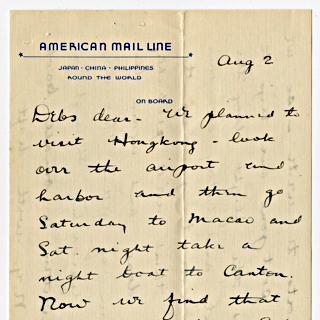 AMERICAN MAIL LINE
JAPAN · CHINA · PHILIPPINES
ROUND THE WORLD
Aug 2
ON BOARD
Debs dear - We planned to
visit Hongkong - look
over the airport and
harbor and then go
Saturday to Macao and
Sat. night take a
night boat to Canton.
Now we find that